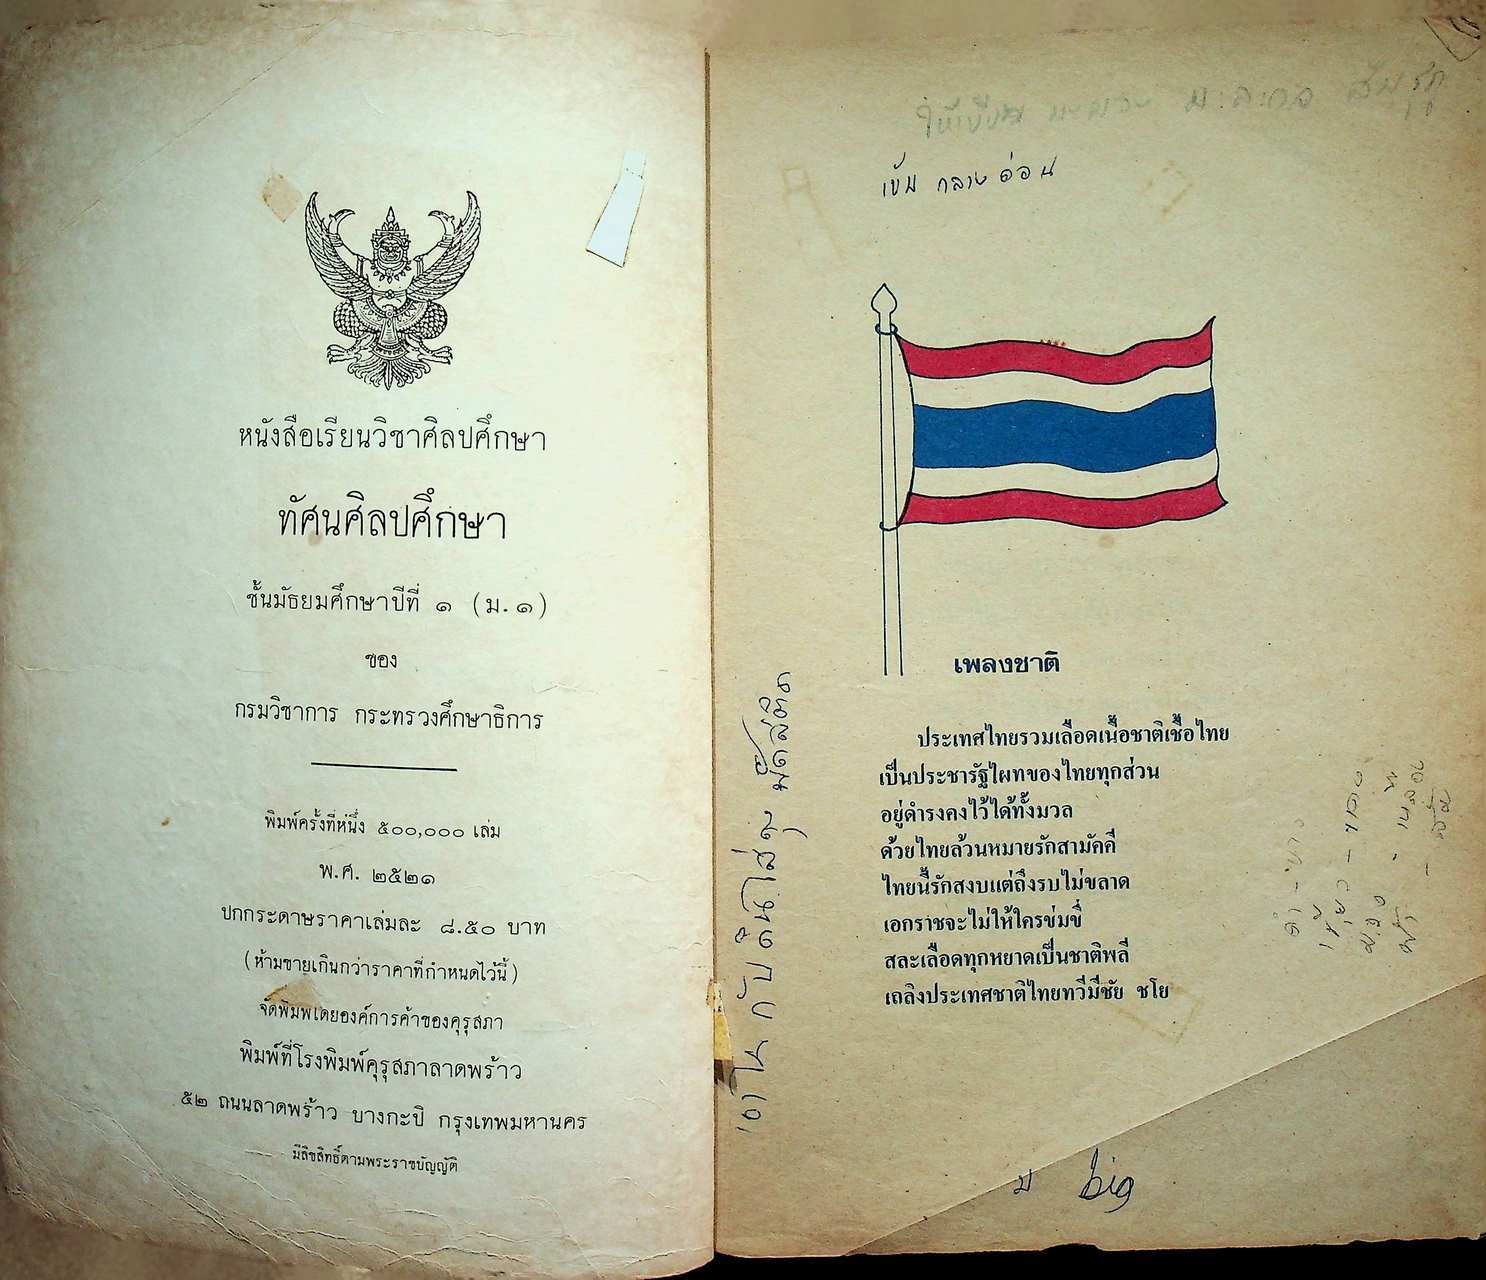 หนังสือเรียนวิชาศิลปศึกษา
ทัศนศิลปศึกษา
ชั้นมัธยมศึกษาปีที่ ๑ (ม.๑)
ของ
กรมวิชาการ กระทรวงศึกษาธิการ
พิมพ์ครั้งที่หนึ่ง ๕๐๐,๐๐๐ เล่ม
พ.ศ. ๒๕๒๑
ปกกระดาษราคาเล่มละ ๘.๕๐ บาท
(ห้ามขายเกินกว่าราคาที่กำหนดไว้นี้)
จัดพิมพ์โดยองค์การค้าของคุรุสภา
พิมพ์ที่โรงพิมพ์คุรุสภาลาดพร้าว
๕๒ ถนนลาดพร้าว บางกะปิ กรุงเทพมหานคร
มีลิขสิทธิ์ตามพระราชบัญญัติ
เข้ม กลาง อ่อน
เพลงชาติ
ประเทศไทยรวมเลือดเนื้อชาติเชื้อไทย
เป็นประชารัฐไผทของไทยทุกส่วน
อยู่ดำรงคงไว้ได้ทั้งมวล
ด้วยไทยล้วนหมายรักสามัคคี
ไทยนี้รักสงบแต่ถึงรบไม่ขลาด
เอกราชจะไม่ให้ใครข่มขี่
สละเลือดทุกหยาดเป็นชาติพลี
เถลิงประเทศชาติไทยทวีมีชัย ชโย
big